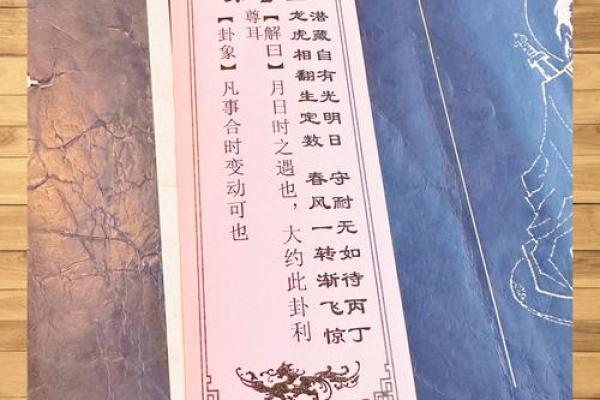 潜藏自有光明日 守耐无如待丙丁
龙虎相翻生定数 春风一转渐飞惊
【解曰】月日时之遇也，大约此卦利
尊耳
【卦象】凡事合时变动可也